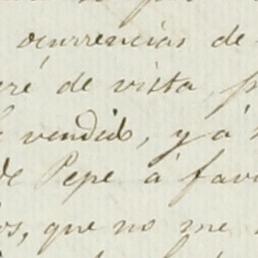 ocurrencias de
ré de vista, p
vendido, y á
de Pepe á fav
os, que no me